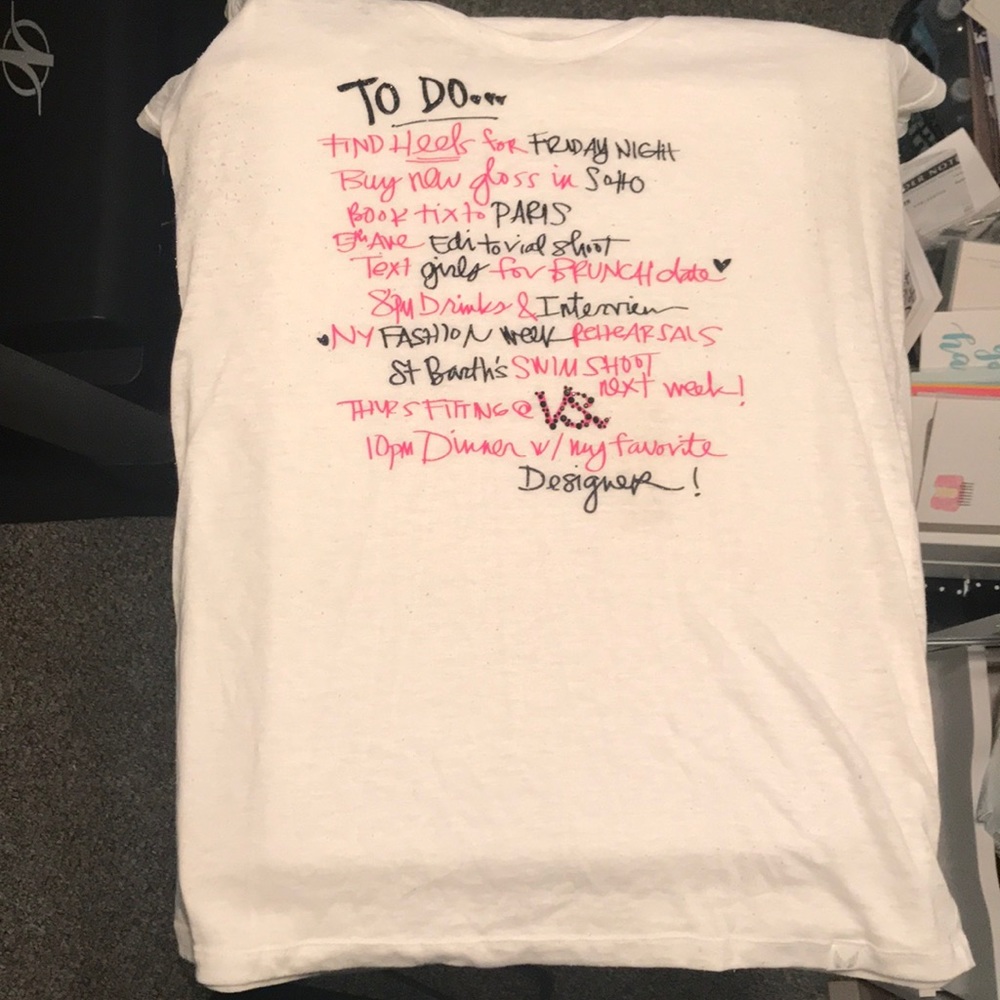 TO DO...
FIND Heels for FRIDAY NIGHT
Buy new gloss in SOHO
BOOK tix to PARIS
5th Ave Editorial shoot
Text girls for BRUNCH date
8pm Drinks & Interview
NY FASHION Week REHEARSALS
St Barth's SWIM SHOOT
next week!
THURS FITTING @ VS.
10pm Dinner w/ my favorite
Designer!